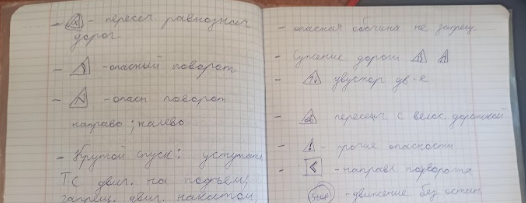 - пересеч равнознач
дорог
- опасный поворот
- опасн поворот
направо; налево
- Крутой спуск: уступаем
ТС двиг. на подъем!
запрещ. двиг. накатом
- опасная обочина не запрещ.
- Сужение дороги
двустор дв-е
- пересеч. с велос дорожкой
- прочие опасности
- направл поворота
STOP - движение без остан